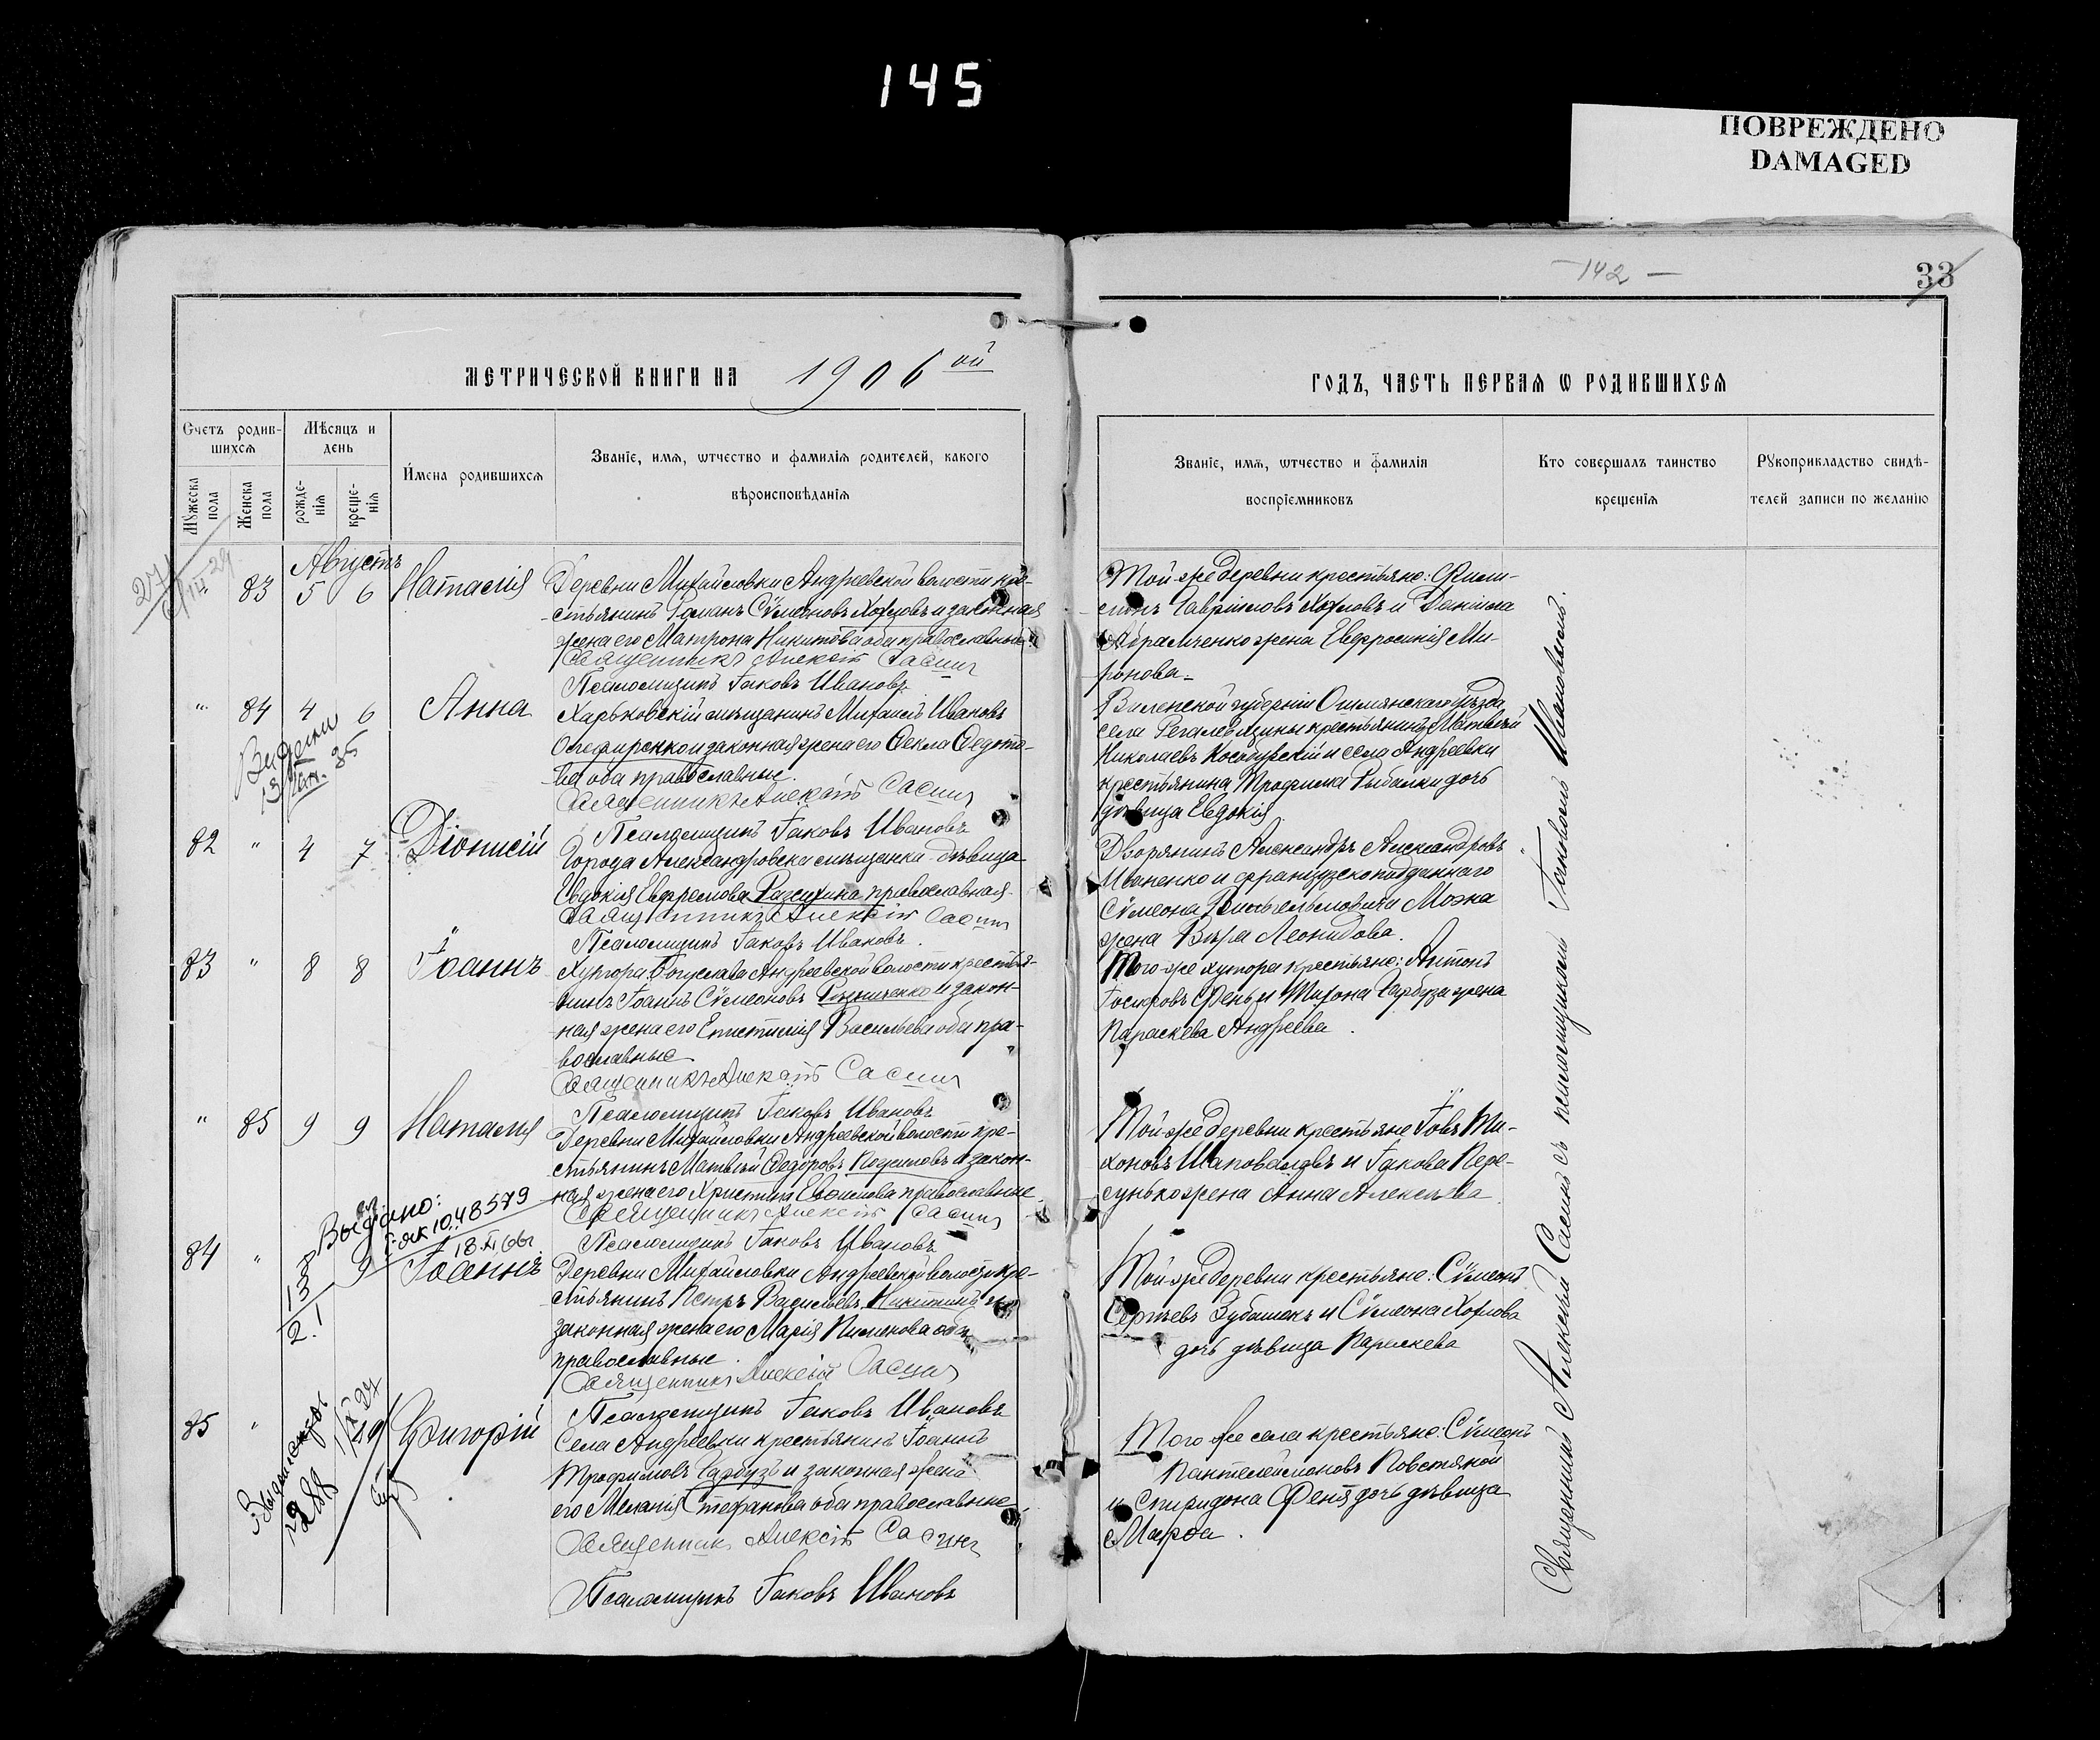 145
ПОВРЕЖДЕНО
DAMAGED
- 142 -
33
МЕТРИЧЕСКОЙ КНИГИ НА 1906 ой
ГОДЪ, ЧАСТЬ ПЕРВАЯ Ѡ РОДИВШИХСЯ
Счетъ родив-
шихсѧ
Мѣсяцъ и
день
Мꙋжеска пола
Женска пола
рожде-
нія
креще-
нія
Имена родившихсѧ
Званіе, имѧ, ѡтчество и фамилія родителей, какого
вѣроисповѣданія
Званіе, имѧ, ѡтчество и фамилія
воспріемниковъ
Кто совершалъ таинство
крещенія
Рꙋкоприкладство свидѣ-
телей записи по желанію
Августъ
" 83 5 6 Наталія
Деревни Михайловки Андреевской волости кре-
стьянинъ Романъ Сѵмеоновъ Хохловъ и законная
жена его Матрона Никитова оба православные
Священникъ Алексій Сасинъ
Псаломщикъ Іаковъ Ивановъ
Той-же деревни крестьяне: Фили-
монъ Гавриловъ Хохловъ и Даніила
Абрамченко жена Евфросинія Ми-
ронова
" 84 4 6 Анна
Харьковскій мѣщанинъ Михаилъ Ивановъ
Олефиренко и законная жена его Ѳекла Ѳедото-
ва оба православные.
Священникъ Алексій Сасинъ
Псаломщикъ Іаковъ Ивановъ
Виленской губерніи Ошмянскаго уѣзда
села крестьянинъ Матвѣй
Николаевъ Кособурскій и села Андреевки
крестьянина Трофима Рыбалки дочь
дѣвица Евдокія
82 " 4 7 Діонисій
Города Александровска мѣщанка-дѣвица
Евдокія Евфремова православная
Священникъ Алексій Сасинъ
Псаломщикъ Іаковъ Ивановъ
Дворянинъ Александръ Александровъ
Иваненко и французскоподданнаго
Сѵмеона
жена Вѣра Леонидова.
83 " 8 8 Іоаннъ
Хутора Богуслава Андреевской волости крестья-
нинъ Іоаннъ Сѵмеоновъ Резниченко и закон-
ная жена его Епистимія Васильева оба пра-
вославные
Священникъ Алексій Сасинъ
Псаломщикъ Іаковъ Ивановъ
Того-же хутора крестьяне: Антонъ
Іосифовъ Фень и Тихона Гарбуза жена
Параскева Андреева.
" 85 9 9 Наталія
Деревни Михайловки Андреевской волости кре-
стьянинъ Матвѣй Ѳедоровъ и закон-
ная жена его Христина православные
Священникъ Алексій Сасинъ
Псаломщикъ Іаковъ Ивановъ
Той-же деревни крестьяне Іовъ Ти-
хоновъ Шаповаловъ и Іакова Пере-
сунько жена Анна Алексѣева
84 " 9 Іоаннъ
Деревни Михайловки Андреевской волости кре-
стьянинъ Петръ Васильевъ Никитинъ и
законная жена его Марія Пименова оба
православные.
Священникъ Алексій Сасинъ
Псаломщикъ Іаковъ Ивановъ
Той-же деревни крестьяне: Сѵмеонъ
Сергѣевъ Зубашекъ и Сѵмеона Хохлова
дочь дѣвица Параскева
85 " Григорій
Села Андреевки крестьянинъ Іоаннъ
Трофимовъ Гарбузъ и законная жена
его Меланія Стефанова оба православные
Священникъ Алексій Сасинъ
Псаломщикъ Іаковъ Ивановъ
Того же села крестьяне: Сѵмеонъ
Пантелеимоновъ Повстяной
и Спиридона Феня дочь дѣвица
Марѳа.
Священникъ Алексѣй Сасинъ съ псаломщикомъ Іаковомъ Ивановымъ.